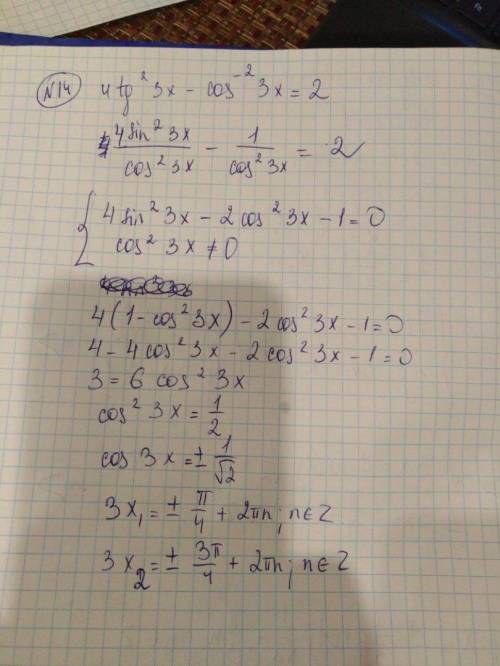 N14 4tg²3x - cos⁻²3x = 2
4sin²3x/cos²3x - 1/cos²3x = 2
{ 4sin²3x - 2cos²3x - 1 = 0
cos²3x ≠ 0
4(1 - cos²3x) - 2cos²3x - 1 = 0
4 - 4cos²3x - 2cos²3x - 1 = 0
3 = 6cos²3x
cos²3x = 1/2
cos3x = ± 1/√2
3x₁ = ± π/4 + 2πn; n∈Z
3x₂ = ± 3π/4 + 2πn; n∈Z